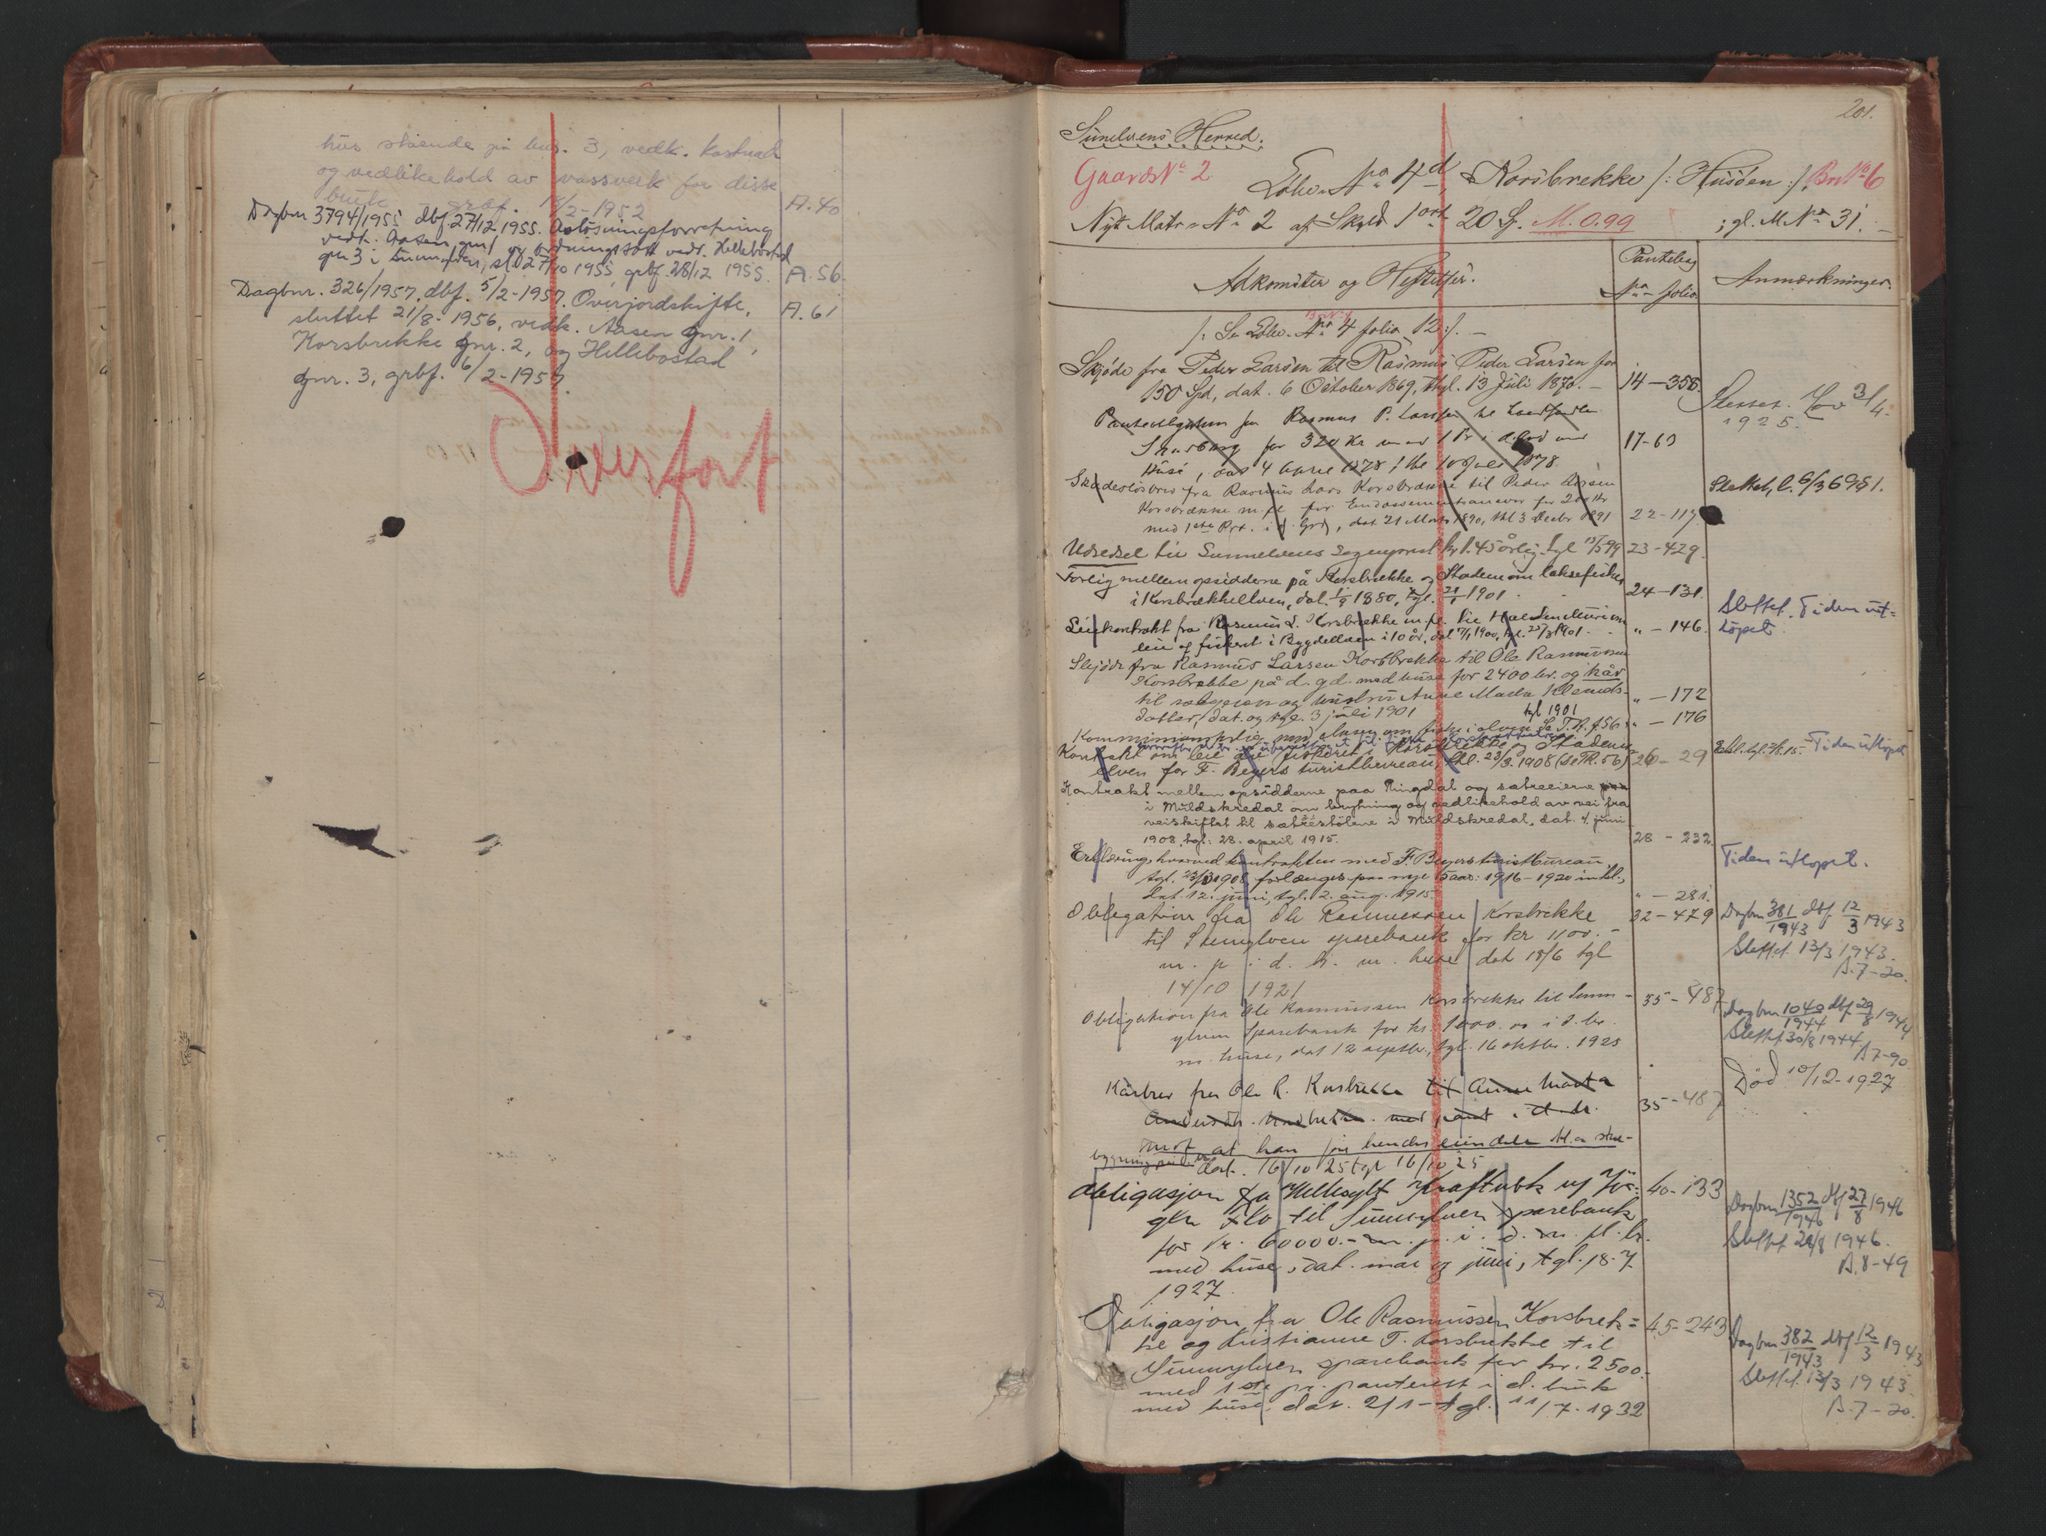 hus stående på bnr. 3, vedk. kostnad
og vedlikehold av vassverk for disse
bruk grbf. /2-1952 A. 40
Dagbnr 3794/1955 dbf. 27/12 1955. Avløsningsforretning
vedk. Aasen gnr 1 og vedr. Hellebostad
gnr 3 i Sunnylven, sl. 27/10 1955, grbf. 28/12 1955. A. 56.
Dagbnr. 326/1957, dbf. 5/2-1957. Overjordskifte,
sluttet 21/8-1956, vedk. Aasen gnr. 1, A. 61
Korsbrekke gnr. 2, og Hellebostad
gnr. 3, grbf. 6/2-1957.
Overført
201.
Sunelvens Herred.
Gaards No 2
Løbe-No 4d Korsbrekke /: Husøen :/ Bn No 6
Nyt Matr-No 2 af Skyld 1 ort 20 ß. M. 0.99 ; gl. M No 31.
Adkomster og Heftelser. Pantebog No - folio Anmærkninger.
/: Se Løbe-No 4 folio 12 :/. —
Skjøde fra Peder Larsen til Rasmus Peder Larsen for
150 Spd, dat. 6 October 1869, thgl. 13 Juli 1870. — 14 — 358.
Panteobligation fra Rasmus P. Larsen til
for 320 Kr med 1 Pr i d. Grd med 17-63
Huse, dat 4 April 1878, thl 10 Juli 1878. Slettet. 3/4 1925.
Skadesløsbrev fra Rasmus Lars Korsbrække til Peder Larsen
Korsbrække m. fl. for Endossementsansvar for 200 Kr
med 1ste Prt. i d. Grd, dat 21 Marts 1890, thl 3 Decbr 1891 22-117 Slettet, l. 6/3 6951.
Udseddel til Sunnelvens Sogneprest kr 1.45 årlig tgl 15/5 99 23-429.
Forlig mellem opsidderne på Korsbrække og Stadem om laksefisket
i Korsbrækkelven, dat. 1/9 1880, tgl. 21/1 1901. 24-131.
Leiekontrakt fra Rasmus L. Korsbrække m. fl. til
leie af fiskeri i Bygdelven i 10 år, dat 17/1 1900, tgl. 25/3 1901. " — 146. Slettet. Tiden utløpet.
Skjøde fra Rasmus Larsen Korsbrekke til Ole Rasmussen
Korsbrekke på d. gd. med huse for 2400 kr. og kår
til sælgeren og hustru Anne Marta Klemets- " — 172
datter, dat. og tgl. 3 juli 1901
tgl 1901 " — 176
Kontrakt om leie av fiskeri i Korsbrekke og Stadem-
elven for F. Beyers turistbureau, thl. 23/3 1908 (se P.R. 56) 26-29 Tiden utløpet
Kontrakt mellem opsidderne paa Ringdal og sætreeierne
i Muldskredal om brytning og vedlikehold av vei fra
veiskiftet til sætrestølene i Muldskredal, dat. 4. juni
1908, tgl. 28. april 1915. 28 - 232.
Erklæring hvorved kontrakten med F. Beyers turistbureau,
tgl. 23/3 1908 forlænges paa nye 5 aar: 1916-1920 inkl., Tiden utløpet.
dat. 12. juni, tgl. 2. aug. 1915. " — 281.
Obligation fra Ole Rasmussen Korsbrekke 32-479 Dagbnr 381/1943 dbf 12/3 1943
til Sunnylven sparebank for kr 1100.- Slettet 13/3 1943.
m. p i d. b. m. huse dat 18/6 tgl A. 7-20.
14/10 1921
Obligation fra Ole Rasmussen Korsbrekke til Sunn- 35-487 Dagbnr 1040/1944 dbf 29/8 1944
ylven Sparebank for kr. 1000.00 i d. br. Slettet 30/8 1944.
m. huse, dat 12 septbr., tgl. 16 oktbr. 1925 A 7-90
Kårbrev fra Ole R. Korsbrekke til Anne Marta 35-487 Død 10/12-1927
Andersdtr. Korsbrekke med pant i d. br.
mot at han for hendes eiendele
dat. 16/10 25 tgl 16/10 25
Obligasjon fra Hellesylt Kraftverk v/ Jør- 40-133 Dagbnr 1352/1946 dbf 27/8 1946
gen Flo til Sunnylven sparebank
for kr. 60000.- m. p. i. d. m. fl. br. Slettet 28/8 1946.
med huse, dat. mai og juni, tgl. 18-7 A. 8-49
1927.
Obligasjon fra Ole Rasmussen Korsbrek- 45-243 Dagbnr 382/1943 dbf 12/3 1943
ke og Kristianne T. Korsbrekke til
Sunnylven sparebank for kr. 2500.- Slettet 13/3 1943.
med 1ste pr. panterett i d. bruk A. 7-20.
med huse, dat. 2/1 - tgl. 11/7-1932